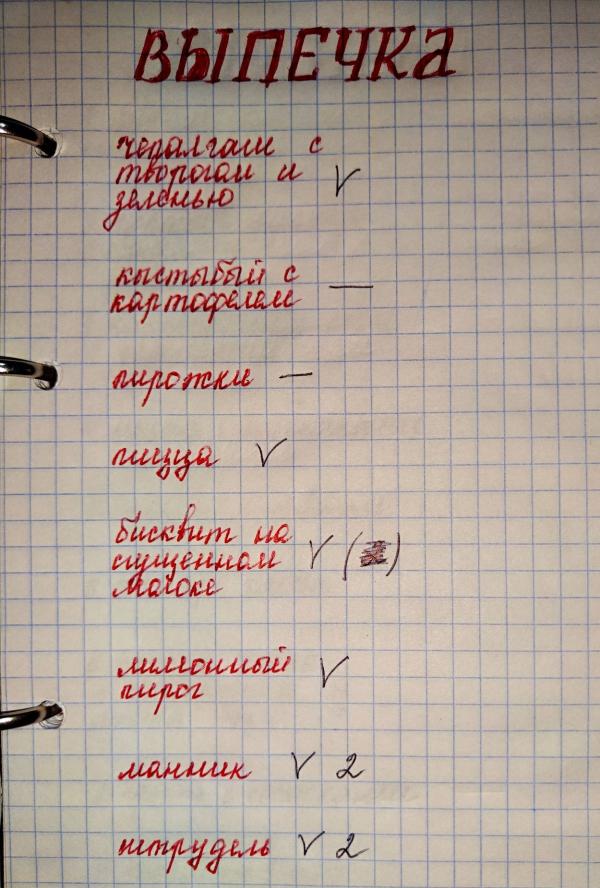 ВЫПЕЧКА
чепалгаш с
творогом и
зеленью V
кыстыбый с
картофелем —
пирожки —
пицца V
бисквит на
сгущенном V ( )
молоке
лимонный V
пирог
манник V 2
штрудель V 2